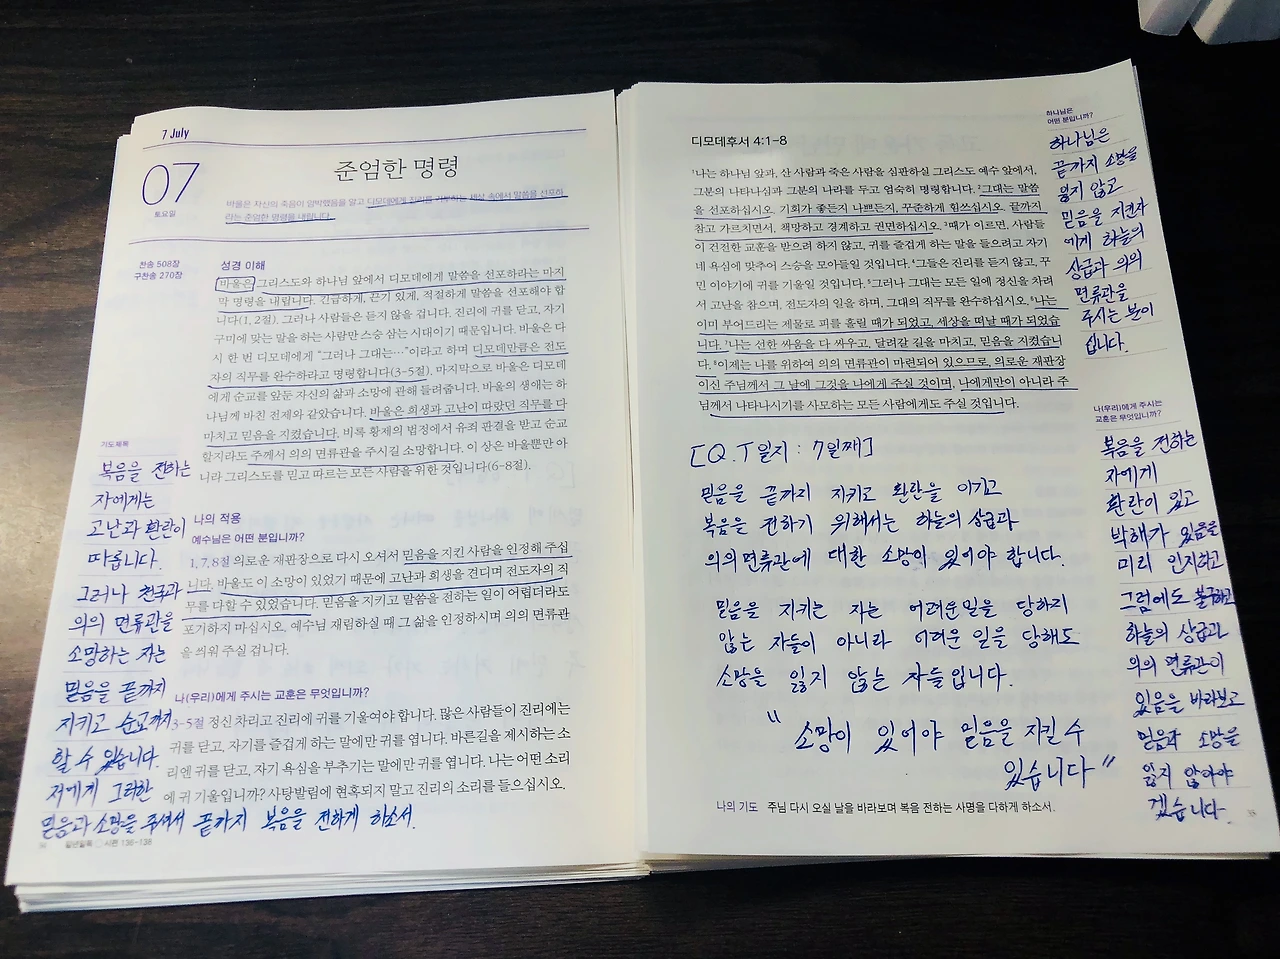 7 July
07
토요일
준엄한 명령
바울은 자신의 죽음이 임박했음을 알고 디모데에게 진리를 거부하는 세상 속에서 말씀을 선포하
라는 준엄한 명령을 내립니다.
찬송 508장
구찬송 270장
성경 이해
바울은 그리스도와 하나님 앞에서 디모데에게 말씀을 선포하라는 마지
막 명령을 내립니다. 긴급하게, 끈기 있게, 적절하게 말씀을 선포해야 합
니다(1, 2절). 그러나 사람들은 듣지 않을 겁니다. 진리에 귀를 닫고, 자기
구미에 맞는 말을 하는 사람만 스승 삼는 시대이기 때문입니다. 바울은 다
시 한 번 디모데에게 “그러나 그대는…”이라고 하며 디모데만큼은 전도
자의 직무를 완수하라고 명령합니다(3-5절). 마지막으로 바울은 디모데
에게 순교를 앞둔 자신의 삶과 소망에 관해 들려줍니다. 바울의 생애는 하
나님께 바친 전제와 같았습니다. 바울은 희생과 고난이 따랐던 직무를 다
마치고 믿음을 지켰습니다. 비록 황제의 법정에서 유죄 판결을 받고 순교
할지라도 주께서 의의 면류관을 주시길 소망합니다. 이 상은 바울뿐만 아
니라 그리스도를 믿고 따르는 모든 사람을 위한 것입니다(6-8절).
나의 적용
예수님은 어떤 분입니까?
1, 7, 8절 의로운 재판장으로 다시 오셔서 믿음을 지킨 사람을 인정해 주십
니다. 바울도 이 소망이 있었기 때문에 고난과 희생을 견디며 전도자의 직
무를 다할 수 있었습니다. 믿음을 지키고 말씀을 전하는 일이 어렵더라도
포기하지 마십시오. 예수님 재림하실 때 그 삶을 인정하시며 의의 면류관
을 씌워 주실 겁니다.
나(우리)에게 주시는 교훈은 무엇입니까?
3-5절 정신 차리고 진리에 귀를 기울여야 합니다. 많은 사람들이 진리에는
귀를 닫고, 자기를 즐겁게 하는 말에만 귀를 엽니다. 바른길을 제시하는 소
리엔 귀를 닫고, 자기 욕심을 부추기는 말에만 귀를 엽니다. 나는 어떤 소리
에 귀 기울입니까? 사탕발림에 현혹되지 말고 진리의 소리를 들으십시오.
기도제목
복음을 전하는
자에게는
고난과 환란이
따릅니다.
그러나 천국과
의의 면류관을
소망하는 자는
믿음을 끝까지
지키고 순교까지
할 수 있습니다.
저에게 그러한
믿음과 소망을 주셔서 끝까지 복음을 전하게 하소서.
일년일독 시편 136-138
디모데후서 4:1-8
¹나는 하나님 앞과, 산 사람과 죽은 사람을 심판하실 그리스도 예수 앞에서,
그분의 나타나심과 그분의 나라를 두고 엄숙히 명령합니다. ²그대는 말씀
을 선포하십시오. 기회가 좋든지 나쁘든지, 꾸준하게 힘쓰십시오. 끝까지
참고 가르치면서, 책망하고 경계하고 권면하십시오. ³때가 이르면, 사람들
이 건전한 교훈을 받으려 하지 않고, 귀를 즐겁게 하는 말을 들으려고 자기
네 욕심에 맞추어 스승을 모아들일 것입니다. ⁴그들은 진리를 듣지 않고, 꾸
민 이야기에 귀를 기울일 것입니다. ⁵그러나 그대는 모든 일에 정신을 차려
서 고난을 참으며, 전도자의 일을 하며, 그대의 직무를 완수하십시오. ⁶나는
이미 부어드리는 제물로 피를 흘릴 때가 되었고, 세상을 떠날 때가 되었습
니다. ⁷나는 선한 싸움을 다 싸우고, 달려갈 길을 마치고, 믿음을 지켰습니
다. ⁸이제는 나를 위하여 의의 면류관이 마련되어 있으므로, 의로운 재판장
이신 주님께서 그 날에 그것을 나에게 주실 것이며, 나에게만이 아니라 주
님께서 나타나시기를 사모하는 모든 사람에게도 주실 것입니다.
[Q.T일지 : 7일째]
믿음을 끝까지 지키고 환란을 이기고
복음을 전하기 위해서는 하늘의 상급과
의의 면류관에 대한 소망이 있어야 합니다.
믿음을 지키는 자는 어려운일을 당하지
않는 자들이 아니라 어려운 일을 당해도
소망을 잃지 않는 자들입니다.
“소망이 있어야 믿음을 지킬 수
있습니다”
나의 기도 주님 다시 오실 날을 바라보며 복음 전하는 사명을 다하게 하소서.
하나님은
어떤 분입니까?
하나님은
끝까지 소망을
잃지 않고
믿음을 지킨자
에게 하늘의
상급과 의의
면류관을
주시는 분이
십니다.
나(우리)에게 주시는
교훈은 무엇입니까?
복음을 전하는
자에게
환란이 있고
박해가 있음을
미리 인지하고
그럼에도 불구하고
하늘의 상급과
의의 면류관이
있음을 바라보고
믿음과 소망을
잃지 않아야
겠습니다.